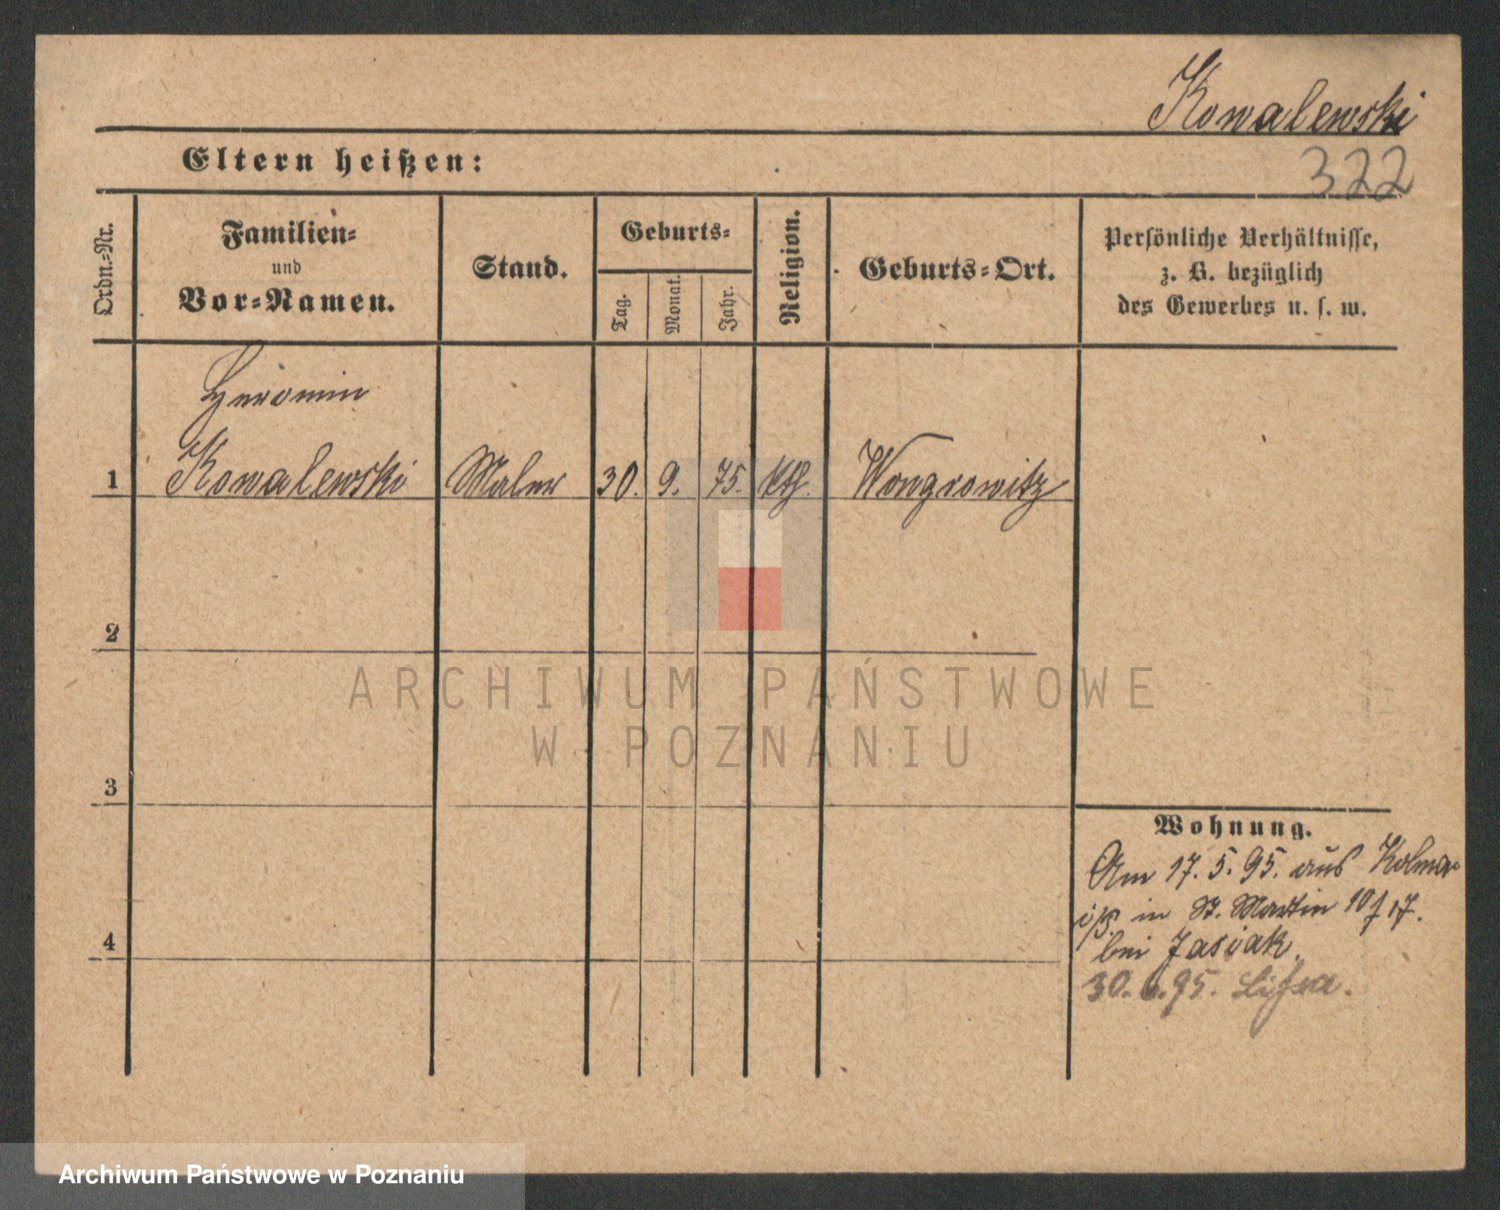 Kowalewski
322
Eltern heißen:
Ordn.-Nr.
Familien-
und
Vor-Namen.
Stand.
Geburts-
Tag.
Monat.
Jahr.
Religion.
Geburts-Ort.
Persönliche Verhältnisse,
z. B. bezüglich
des Gewerbes u. s. w.
Heronim
1 Kowalewski Maler 30. 9. 75. kth. Wongrowitz
2
3
4
Wohnung.
Am 17. 5. 95. aus Kolmar
i/P. in St. Martin 10 17.
bei Jasiak.
30. 95.
ARCHIWUM PAŃSTWOWE
W POZNANIU
Archiwum Państwowe w Poznaniu